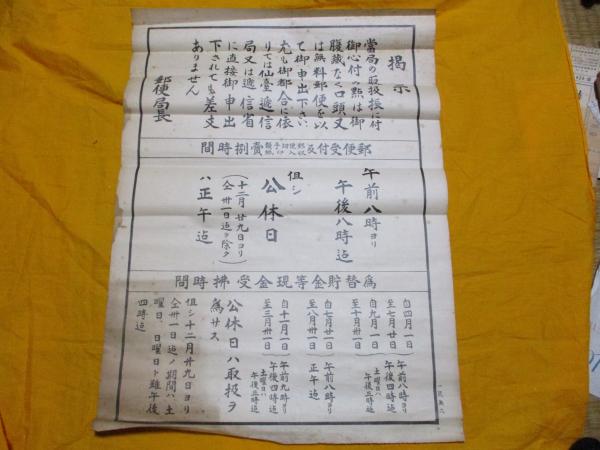 揭示
當局の取扱振に付
御心付の點は御
腹蔵なく口頭又
は無料郵便を以
て御申出下さい
尤も御都合に依
りては仙臺遞信
局又は遞信省
に直接御申出
下されても差支
ありません
郵便局長
間時捌賣類紙入印手切便郵及付受便郵
午前八時ヨリ
午後八時迄
但シ
公休日
(十二月廿九日ヨリ
仝卅一日迄ヲ除ク)
ハ正午迄
間時拂受金現等金貯替爲
自四月一日
至七月廿日
午前八時ヨリ
午後四時迄
自九月一日
至十月卅一日
土曜日ハ
午後三時迄
自七月廿一日
至八月卅一日
午前八時ヨリ
正午迄
自十一月一日
至三月卅一日
午前九時ヨリ
午後四時迄
土曜日ハ
午後三時迄
公休日ハ取扱ヲ
爲サス
但シ十二月廿九日ヨリ
仝卅一日迄ノ期間ハ土
曜日、日曜日ト雖午後
四時迄